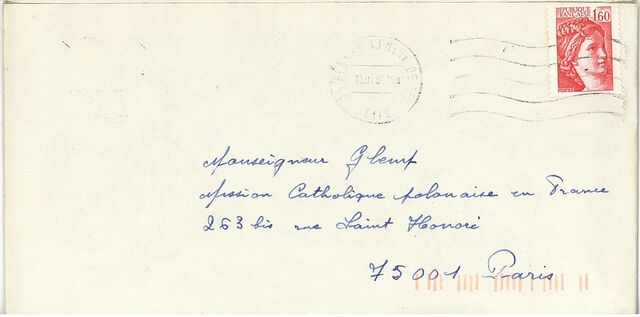 REPUBLIQUE
FRANÇAISE
1,60
Monseigneur Glemp
Mission Catholique polonaise en France
263 bis rue Saint Honoré
75001 Paris